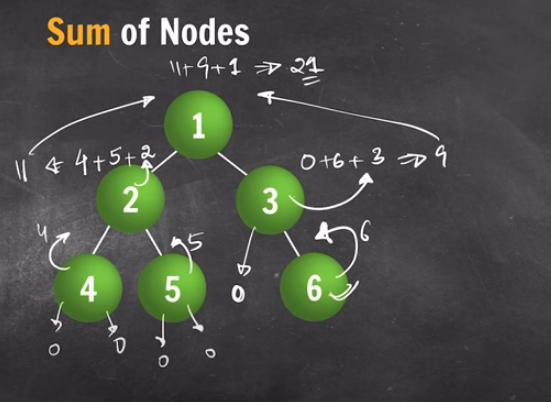 Sum of Nodes
11+9+1 ⇒ 21
1
11 ← 4+5+2
0+6+3 ⇒ 9
2
3
4
5
6
4
5
0
6
0
0
0
0